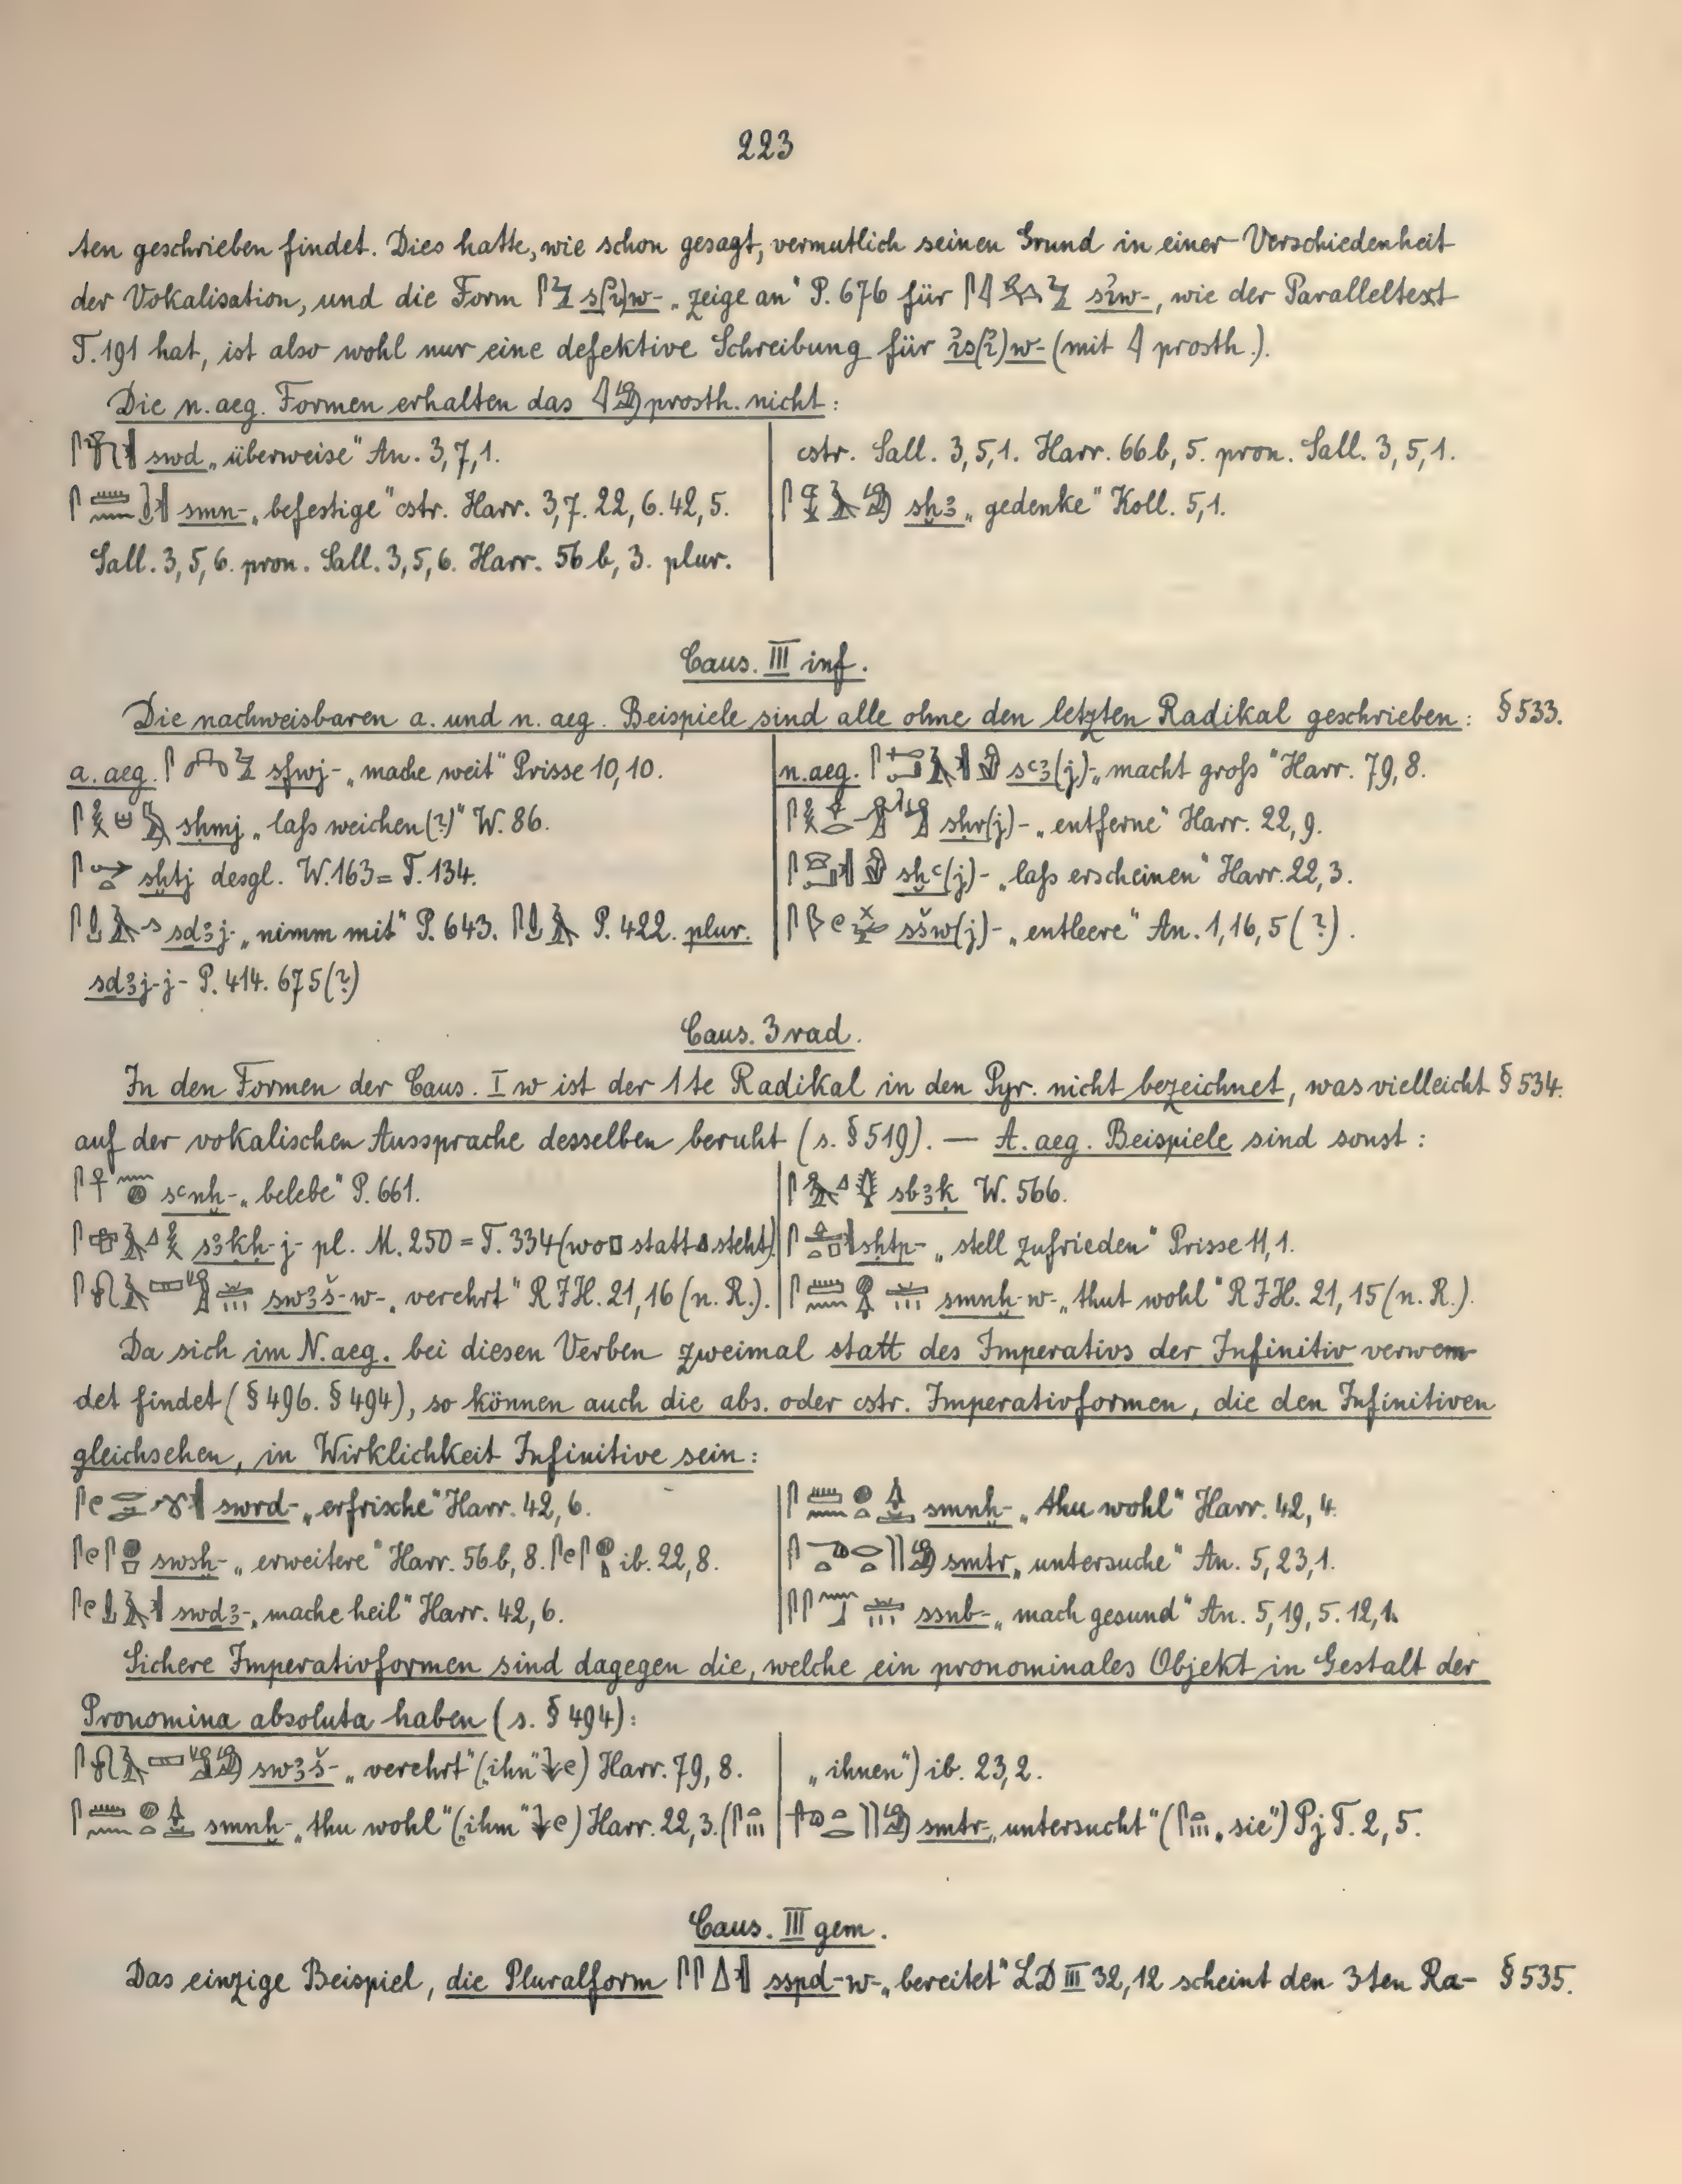 223
ten geschrieben findet. Dies hatte, wie schon gesagt, vermutlich seinen Grund in einer Verschiedenheit
der Vokalisation, und die Form s(ỉ)w- „zeige an“ P. 676 für sỉw-, wie der Paralleltext
T. 191 hat, ist also wohl nur eine defektive Schreibung für ỉs(ỉ)w- (mit 𓇋 prosth.).
Die n. aeg. Formen erhalten das 𓇋𓀁 prosth. nicht:
swd „überweise“ An. 3,7,1.
smn- „befestige“ cstr. Harr. 3,7. 22,6. 42,5.
Sall. 3,5,6. pron. Sall. 3,5,6. Harr. 56 b, 3. plur.
cstr. Sall. 3,5,1. Harr. 66 b, 5. pron. Sall. 3,5,1.
sḫꜣ „gedenke“ Koll. 5,1.
Caus. III inf.
Die nachweisbaren a. und n. aeg. Beispiele sind alle ohne den letzten Radikal geschrieben: § 533.
a. aeg. sfwj- „mache weit“ Prisse 10,10.
sḥmj „laß weichen (?)“ W. 86.
sḫtj desgl. W. 163 = T. 134.
sdꜣj- „nimm mit“ P. 643. P. 422. plur.
sdꜣj-j- P. 414. 675 (?)
n. aeg. sꜥꜣ(j)- „macht groß“ Harr. 79, 8.
sḥr(j)- „entferne“ Harr. 22, 9.
sḫꜥ(j)- „laß erscheinen“ Harr. 22, 3.
sšw(j)- „entleere“ An. 1, 16, 5 (?).
Caus. 3 rad.
In den Formen der Caus. I w ist der 1te Radikal in den Pyr. nicht bezeichnet, was vielleicht § 534.
auf der vokalischen Aussprache desselben beruht (s. § 519). — A. aeg. Beispiele sind sonst:
sꜥnḫ- „belebe“ P. 661.
sꜣḳḥ-j- pl. M. 250 = T. 334 (wo 𓊪 statt 𓈎 steht)
swꜣš-w- „verehrt“ R J H. 21, 16 (n. R.).
sbꜣḳ W. 566.
sḥtp- „stell zufrieden“ Prisse 11, 1.
smnḫ-w- „thut wohl“ R J H. 21, 15 (n. R.).
Da sich im N. aeg. bei diesen Verben zweimal statt des Imperativs der Infinitiv verwen-
det findet (§ 496. § 494), so können auch die abs. oder cstr. Imperativformen, die den Infinitiven
gleichsehen, in Wirklichkeit Infinitive sein:
swrd- „erfrische“ Harr. 42, 6.
swsḫ- „erweitere“ Harr. 56 b, 8. ib. 22, 8.
swdꜣ- „mache heil“ Harr. 42, 6.
smnḫ- „thu wohl“ Harr. 42, 4.
smtr „untersuche“ An. 5, 23, 1.
ssnb- „mach gesund“ An. 5, 19, 5. 12, 1.
Sichere Imperativformen sind dagegen die, welche ein pronominales Objekt in Gestalt der
Pronomina absoluta haben (s. § 494):
swꜣš- „verehrt“ („ihn“) Harr. 79, 8.
smnḫ- „thu wohl“ („ihm“) Harr. 22, 3. (
„ihnen“) ib. 23, 2.
smtr- „untersucht“ („sie“) Pj T. 2, 5.
Caus. III gem.
Das einzige Beispiel, die Pluralform sspd-w- „bereitet“ LD III 32, 12 scheint den 3ten Ra- § 535.